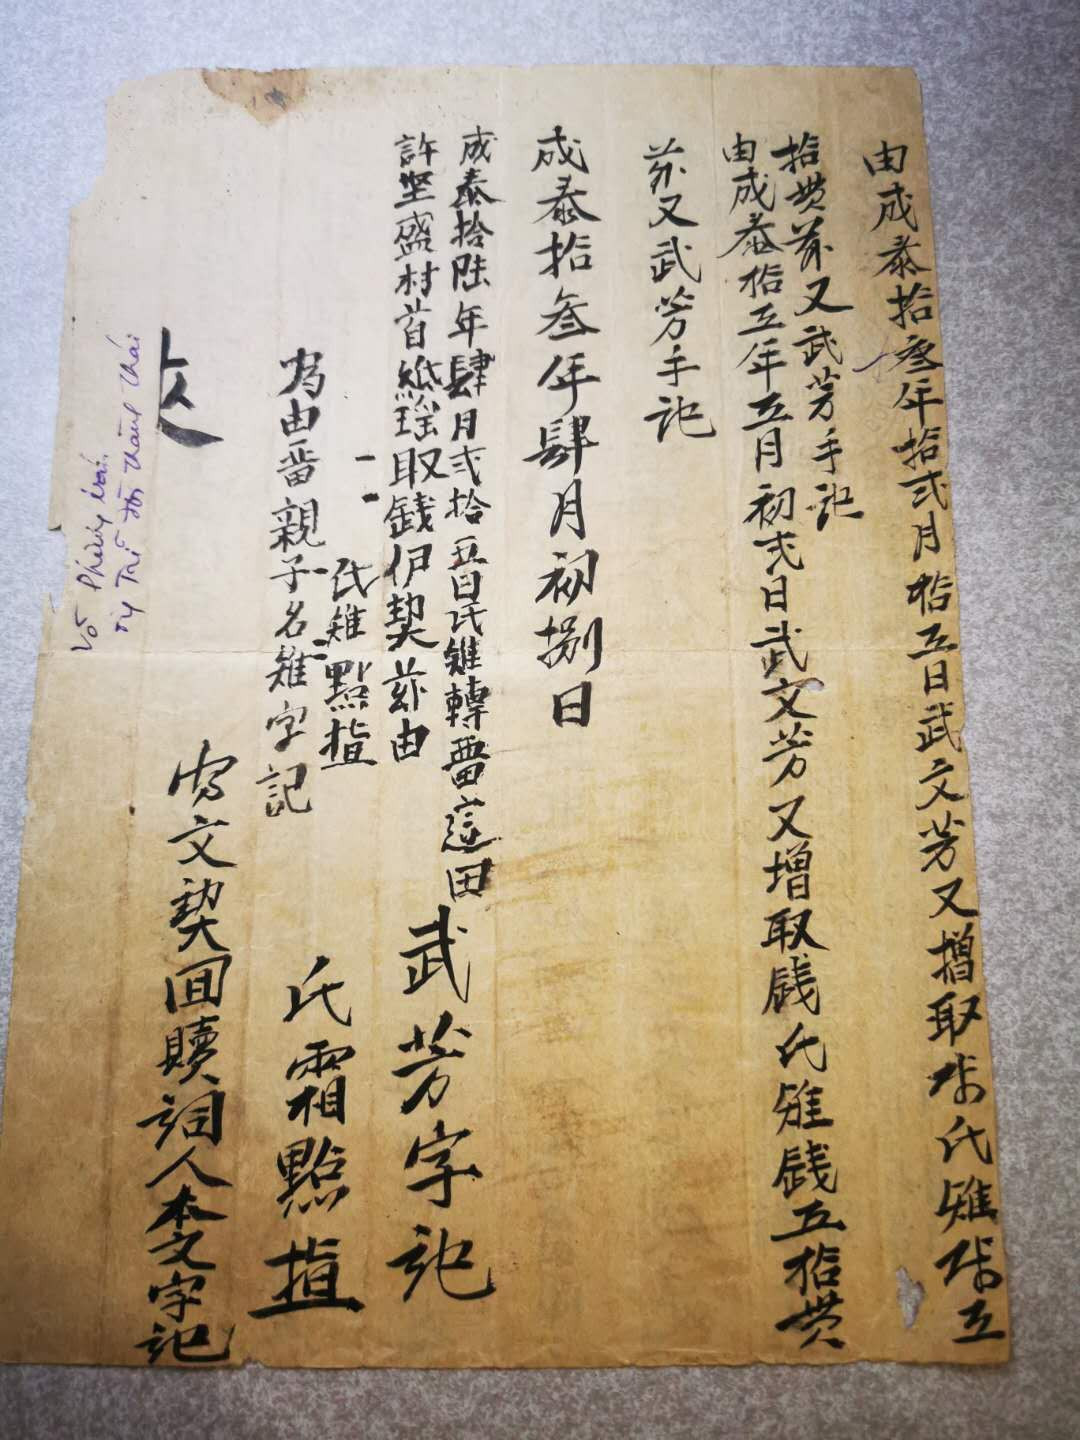 由成泰拾叁年拾弍月拾五日武文芳又增取𠦳氏雉𠦳五
拾贯茶又武芳手記
由成泰拾五年五月初弍日武文芳又增取錢氏雉錢五拾贯
茶又武芳手記
成泰拾叁年肆月初捌日
成泰拾陸年肆月弍拾五日氏雉轉畨這田
許坚盛村首紙瑶取錢伊契茶由
氏雉點指
為由畨親子名雉字記
武芳字記
氏霜點指
寫文契囬贖詞人本文字記
Võ Phương